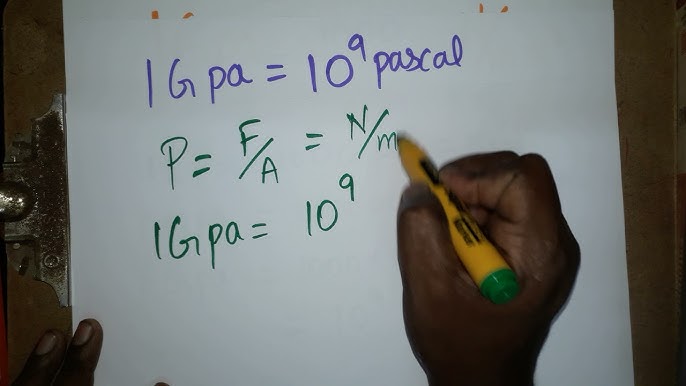 1Gpa = 10⁹ pascal
P = F/A = N/m
1Gpa = 10⁹